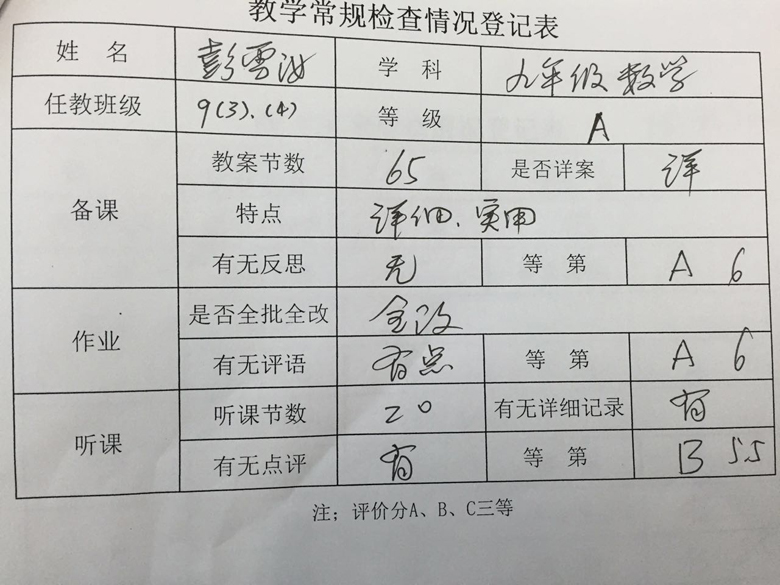 教学常规检查情况登记表
姓 名 彭雲 学 科 九年级数学
任教班级 9(3).(4) 等 级 A
备课 教案节数 65 是否详案 详
特点 详细、实用
有无反思 无 等 第 A 6
作业 是否全批全改 全改
有无评语 有点 等 第 A 6
听课 听课节数 20 有无详细记录 有
有无点评 有 等 第 B 5.5
注；评价分A、B、C三等